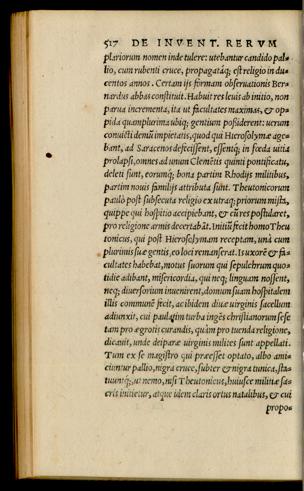 517 DE INVENT. RERVM
plariorum nomen inde tulere: utebantur candido pal=
lio, cum rubenti cruce, propagatáq; est religio in du=
centos annos. Certam ijs formam obseruationis Ber=
nardus abbas constituit. Habuit res leuis ab initio, non
parua incrementa, ita ut facultates maximas, & op=
pida quamplurima ubiq; gentium possiderent: uerum
conuicti demũ impietatis, quod qui Hierosolymæ age=
bant, ad Saracenos defecissent, essentq́; in fœda uitia
prolapsi, omnes ad unum Clemẽtis quinti pontificatu,
deleti sunt, eorumq́; bona partim Rhodijs militibus,
partim nouis familijs attributa sunt. Theutonicorum
paulò post subsecuta religio ex utraq; priorum mista,
quippe qui hospitio accipiebant, & cũ res postularet,
pro religione armis decertabãt. Initiũ fecit homo Theu
tonicus, qui post Hierosolymam receptam, unà cum
plurimis suæ gentis, eo loci remanserat. Is uxorẽ & fa=
cultates habebat, motus suorum qui sepulchrum quo=
tidie adibant, misericordia, qui neq; linguam nossent,
neq; diuersorium inuenirent, domum suam hospitalem
illis communẽ fecit, ac ibidem diuæ uirginis sacellum
adiunxit, cui paulatim turba ingẽs christianorum sese
tam pro ægrotis curandis, quàm pro tuenda religione,
dicauit, unde deiparæ uirginis milites sunt appellati.
Tum ex se magistro qui præesset optato, albo ami=
ciuntur pallio, nigra cruce, subter & nigra tunica, sta=
tuuntq́;, ut nemo, nisi Theutonicus, huiusce militiæ sa=
cris initietur, atque idem claris ortus natalibus, & cui
propo=